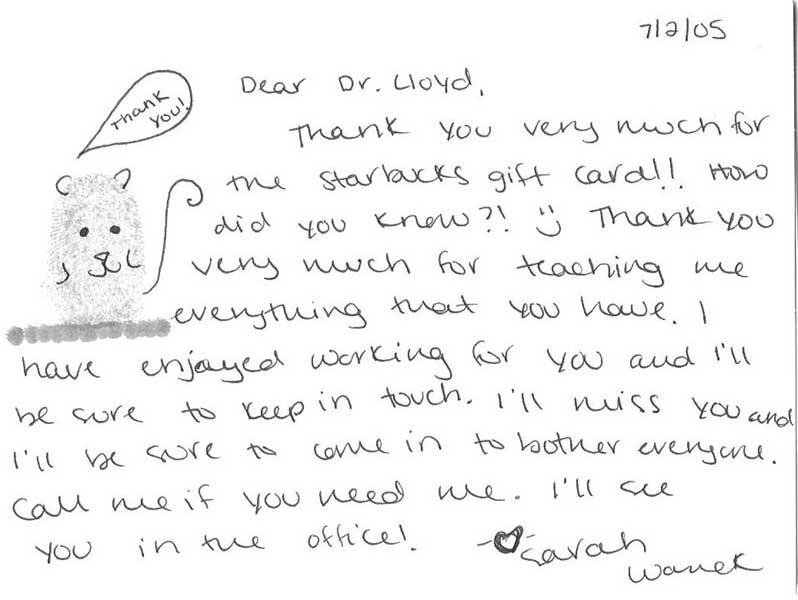 7/2/05
Dear Dr. Lloyd,
Thank you!
Thank you very much for
the Starbucks gift card!! How
did you know?! :) Thank you
very much for teaching me
everything that you have. I
have enjoyed working for you and I'll
be sure to keep in touch. I'll miss you and
I'll be sure to come in to bother everyone.
Call me if you need me. I'll see
you in the office!
-♥Sarah
Wanek